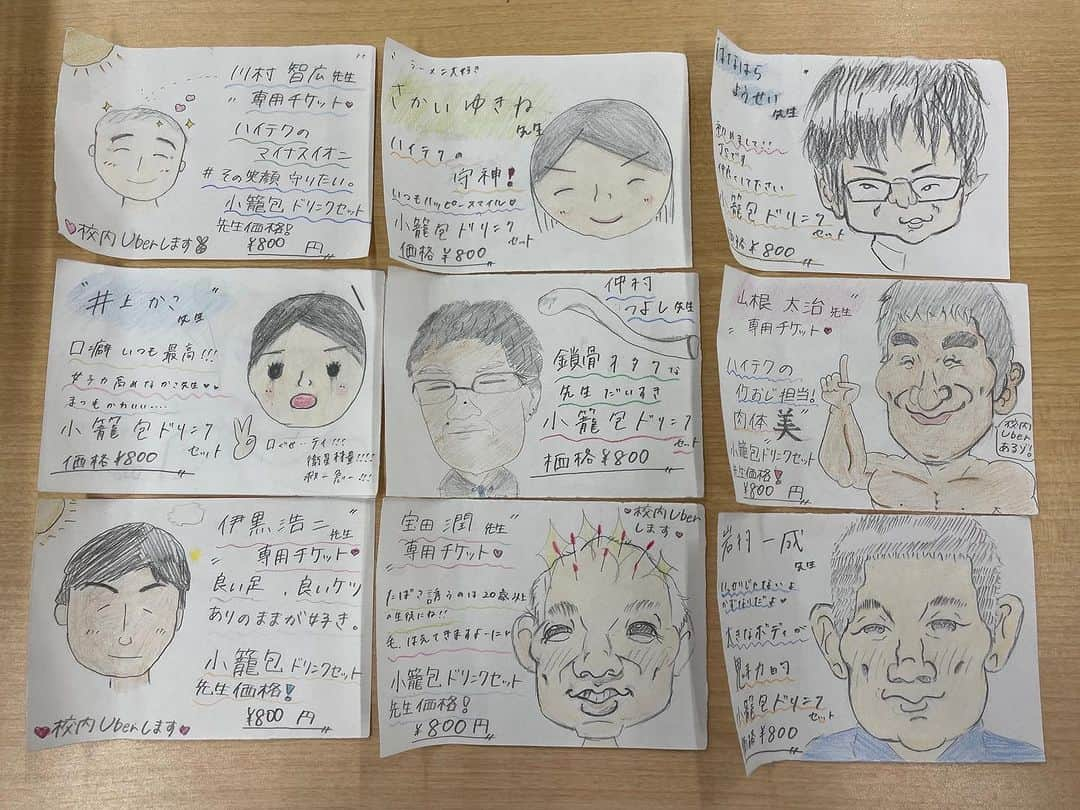 川村 智広 先生
専用チケット
ハイテクの
マイナスイオン
#その笑顔 守りたい。
小籠包ドリンクセット
先生価格!
¥800 円
校内Uberします
ラーメン大好き
さかい ゆきね
先生
ハイテクの
守神!
いつもハッピースマイル
小籠包 ドリンク
セット
価格 ¥800
はなはら
ようせい
先生
初めまして!!
です。
仲良くして下さい
小籠包 ドリンク
セット
価格 ¥800
"井上 かこ"
先生
口癖 いつも 最高!!!
女子力高めなかこ先生
まつもかわいい…
小籠包ドリンク
セット
価格 ¥800
口ぐせ…ティ!!!
衛星材量!!!!
仲村
つよし先生
鎖骨オタクな
先生だいすき
小籠包ドリンク
セット
価格 ¥800
山根 太治 先生"
"専用チケット
ハイテクの
イケおじ担当!
肉体"美"
小籠包ドリンクセット
先生価格!
¥800 円
校内
Uber
あるゾ!
伊黒浩二 先生
専用チケット
良い足、良いケツ
ありのままが好き。
小籠包 ドリンクセット
先生価格!
¥800 円
校内Uberします
宝田 潤 先生"
"専用チケット
校内Uber
します
たばこ誘うのは20歳以上
の生徒にね!!
毛、はえてきますよーに
小籠包ドリンクセット
先生価格!
¥800円
岩村 一成
先生
いっせいじゃないよ
かずなりだよ
大きなボディが
魅力的
小籠包ドリンク
セット
価格 ¥800